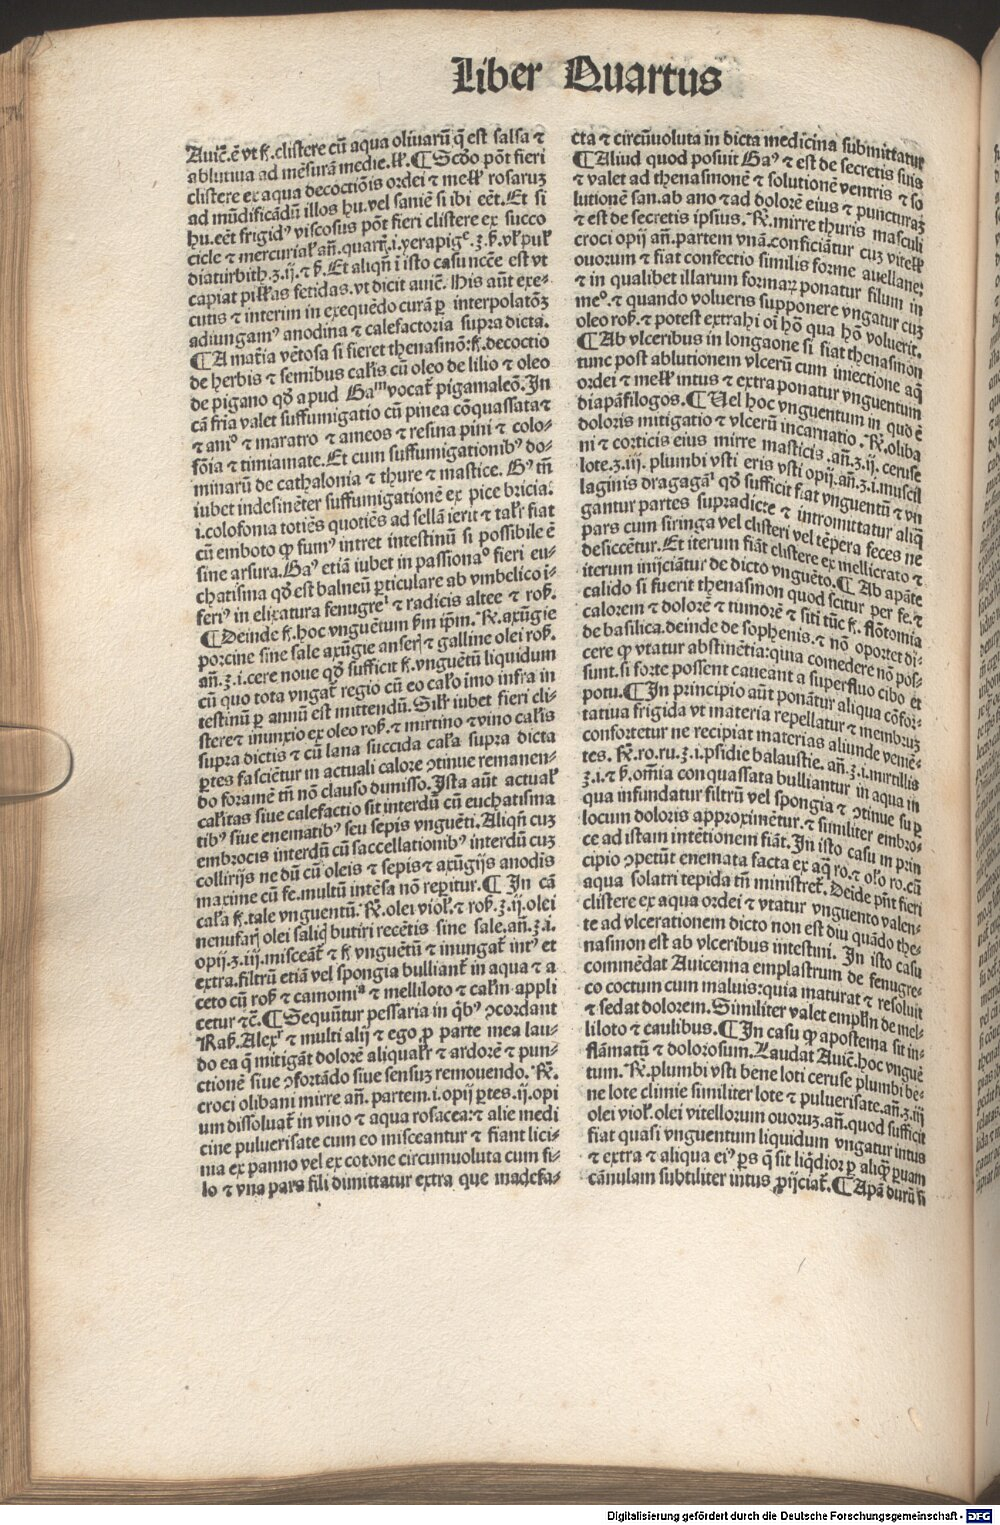 Liber Quartus
Auic̄.ē vt fꝭ.clistere cū aqua oliuarū q̄ est salsa ⁊
ablutiua ad mēsurā medie.lk̄.¶Scd̄o pōt fieri
clistere ex aqua decoctiōis ordei ⁊ mell̄ rosaruꝫ
ad mūdificādū illos hu.vel saniē si ibi eēt.Et si
hu.eēt frigidꝰ viscosus pōt fieri clistere ex succo
cicle ⁊ mercurial̄ añ.quart̄.i.yerapigᵉ.ʒ.ß.vl̄ pul̄
diaturbith.ʒ.ij.⁊ ß.Et aliqñ ī isto casu nc̄ce est vt
capiat pill̄as fetidas.vt dicit auic̄. His aūt exe-
cutis ⁊ interim in exequēdo curā ꝑ interpolatōꝫ
adiungamꝰ anodina ⁊ calefactoria supra dicta.
¶A mat̄ia vētosa si fieret thenasmō:fꝭ.decoctio
de herbis ⁊ semībus cal̄is cū oleo de lilio ⁊ oleo
de pigano qd̄ apud Gaᵐ vocat̄ pigamaleō.In
cā fria valet suffumigatio cū pinea cōquassata ⁊
⁊ aniº ⁊ maratro ⁊ ameos ⁊ resina pini ⁊ colo-
fōia ⁊ timiamate.Et cum suffumigationibꝰ do-
minarū de cathalonia ⁊ thure ⁊ mastice. Gꝰ tm̄
iubet indesinēter suffumigationē ex pice bricia:
.i.colofonia totiēs quotiēs ad sellā ierit ⁊ tal̄r fiat
cū emboto ꝙ fumꝰ intret intestinū si possibile ē
sine arsura.Gaꝰ etiā iubet in passionaº fieri eu-
chatisma qd̄ est balneū ꝑticulare ab vmbelico i-
feriꝰ in elixatura fenugreⁱ ⁊ radicis altee ⁊ roſ̄.
¶Deinde fꝭ.hoc vnguētum ẜm ip̄m.℞.axūgie
porcine sine sale axūgie anserj ⁊ galline olei roſ̄.
añ.ʒ.i.cere noue qd̄ sufficit fꝭ.vnguētū liquidum
cū quo tota vngat̄ regio cū eo cal̄o imo infra in
testinū ꝑ annū est mittendū. Sil̄r iubet fieri cli-
stere ⁊ inunxio ex oleo roſ̄.⁊ mirtino ⁊ vino cal̄is
supra dictis ⁊ cū lana succida cal̄a supra dicta
ꝑtes fasciētur in actuali calore ↄtinue remanen-
do foramē tn̄ nō clauso dimisso.Ista aūt actual̄
cal̄itas siue calefactio sit interdū cū euchatisma
tibꝰ siue enematibꝰ seu sepis vnguēti.Aliqñ cuꝫ
embrocis interdū cū saccellationibꝰ interdū cuꝫ
collirijs ne dū cū oleis ⁊ sepis ⁊ axūgijs anodis
maxime cū fe.multū intēsa nō reꝑitur.¶In cā
cal̄a fꝭ.tale vnguentū.℞.olei viol̄.⁊ roſ̄.ʒ.ij.olei
nenufarj olei saliꝗ butiri recētis sine sale.añ.ʒ.i.
opij.ʒ.iij.misceat̄ ⁊ fꝭ vnguētū ⁊ inungat̄ intꝰ et
extra.filtrū etiā vel spongia bulliant̄ in aqua ⁊ a
ceto cū roſ̄ ⁊ camomiᵃ ⁊ melliloto ⁊ cal̄m appli
cetur ⁊c̄.¶Sequūtur pessaria in q̄bꝰ ↄcordant
Raſ̄.Alexʳ ⁊ multi alij ⁊ ego ꝓ parte mea lau-
do ea q̄ mitigāt dolorē aliqual̄r ⁊ ardorē ⁊ pun-
ctionē siue ↄfortādo siue sensuꝫ remouendo. ℞.
croci olibani mirre añ. partem.i.opij ꝑtes.ij.opi
um dissoluat̄ in vino ⁊ aqua rosacea:⁊ alie medi
cine puluerisate cum eo misceantur ⁊ fiant lici-
nia ex panno vel ex cotone circumuoluta cum fi-
lo ⁊ vna pars fili dimittatur extra que madefa-
cta ⁊ circūuoluta in dicta medicina submittatur
¶Aliud quod posuit Gaꝰ ⁊ est de secretis suis
⁊ valet ad thenasmonē ⁊ solutionē ventris ⁊ so
lutionē san.ab ano ⁊ ad dolorē eius ⁊ puncturaꝫ
⁊ est de secretis ipsius. ℞.mirre thuris masculi
croci opij añ.partem vnā.conficiātur cuꝫ vitell̄
ouorum ⁊ fiat confectio similis forme auellane:
⁊ in qualibet illarum formaꝝ ponatur filum in
meº.⁊ quando volueris supponere vngatur cuꝫ
oleo roſ̄.⁊ potest extrahi oī hō qua hō voluerit.
¶Ab vlceribus in longaone si fiat thenasmon
tunc post ablutionem vlcerū cum iniectione aq̄
ordei ⁊ mell̄ intus ⁊ extra ponatur vnguentum
diapāfilogos.¶Vel hoc vnguentum in quo ē
doloris mitigatio ⁊ vlcerū incarnatio.℞.oliba
ni ⁊ corticis eius mirre masticis .añ.ʒ.ij. ceruse
lote.ʒ.iij. plumbi vsti eris vsti opij.añ.ʒ.i.muscil
laginis dragagāⁱ qd̄ sufficit fiat vnguentū ⁊ vn
gantur partes supradicte ⁊ intromittatur aliq̄
pars cum siringa vel clisteri vel tēpera feces ne
desiccētur.Et iterum fiāt clistere ex mellicrato ⁊
iterum inijciātur de dicto vnguēto.¶Ab apāte
calido si fuerit thenasmon quod scitur per fe.⁊
calorem ⁊ dolorē ⁊ tumorē ⁊ siti tūc fꝭ.flōtomia
de basilica.deinde de sophenis.⁊ nō oportet di-
cere ꝙ vtatur abstinētia:quia comedere nō pos-
sunt.si forte possent caueant a superfluo cibo et
potu.¶In principio aūt ponātur aliqua cōfor-
tatiua frigida vt materia repellatur ⁊ membruꝫ
confortetur ne recipiat materias aliunde veniē-
tes. ℞.ro.ru.ʒ.i.psidie balaustie. añ.ʒ.i.mirtillis
ʒ.i.⁊ ß.om̄ia conquassata bulliantur in aqua in
qua infundatur filtrū vel spongia ⁊ ↄtinue suꝑ
locum doloris approximētur.⁊ similiter embro-
ce ad istam intētionem fiāt.In isto casu in prin
cipio ↄpetūt enemata facta ex aq̄ ro.⁊ ol̄o ro.cū
aqua solatri tepida tn̄ ministret̄.Deīde pn̄t fieri
clistere ex aqua ordei ⁊ vtatur vnguento valen-
te ad vlcerationem dicto non est diu quādo the-
nasmon est ab vlceribus intestini. In isto casu
commēdat Auicenna emplastrum de fenugre-
co coctum cum maluis:quia maturat ⁊ resoluit
⁊ sedat dolorem.Similiter valet empl̄m de mel-
liloto ⁊ caulibus.¶In casu ꝙ apostema sit in-
flāmatū ⁊ dolorosum.Laudat Auic̄.hoc vnguē
tum. ℞.plumbi vsti bene loti ceruse plumbi be-
ne lote climie similiter lote ⁊ puluerisate.añ.ʒ.iij
olei viol̄.olei vitellorum ouoruꝫ.añ.quod sufficit
fiat quasi vnguentum liquidum vngatur intus
⁊ extra ⁊ aliqua eiꝰ ꝑs q̄ sit liq̄dior ꝑ aliq̄ ꝑuam
cānulam subtiliter intus ꝓijciat̄.¶Apā durū si
Digitalisierung gefördert durch die Deutsche Forschungsgemeinschaft - DFG